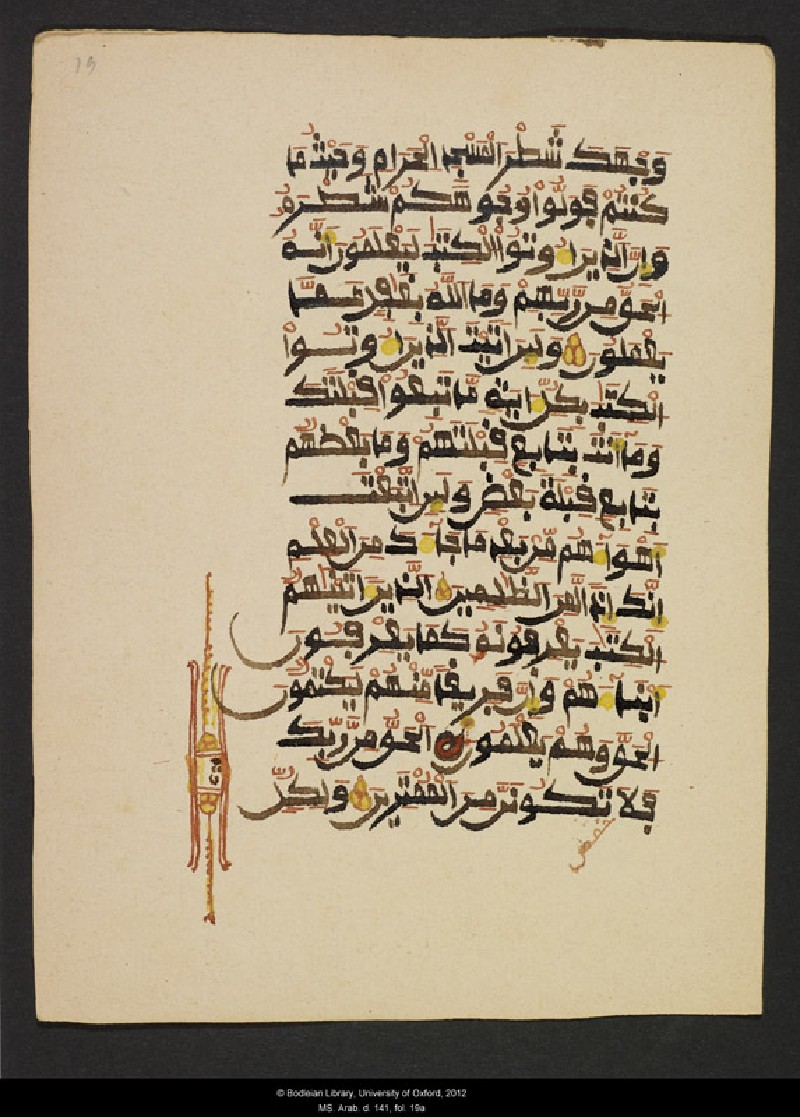 19
وجهك شطر المسجد الحرام وحيث ما
كنتم فولوا وجوهكم شطره
وإن الذين أوتوا الكتب ليعلمون أنه
الحق من ربهم وما الله بغفل عما
يعملون ولئن أتيت الذين أوتوا
الكتب بكل ءاية ما تبعوا قبلتك
وما أنت بتابع قبلتهم وما بعضهم
بتابع قبلة بعض ولئن اتبعت
أهواءهم من بعد ما جاءك من العلم
إنك إذا لمن الظلمين الذين ءاتينهم
الكتب يعرفونه كما يعرفون
أبناءهم وإن فريقا منهم ليكتمون
الحق وهم يعلمون الحق من ربك
فلا تكونن من الممترين ولكل
© Bodleian Library, University of Oxford, 2012
MS. Arab. d. 141, fol. 19a